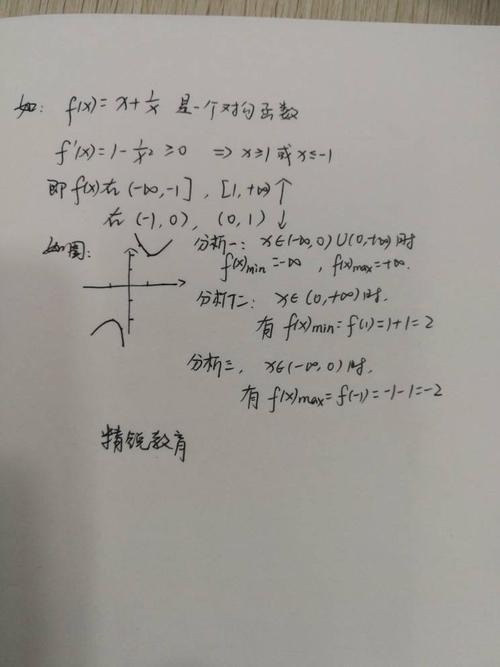 如: f(x)=x+1/x 是一个对勾函数
f'(x)=1-1/x² ≥0 ⇒ x≥1 或 x≤-1
即 f(x)在 (-∞,-1], [1,+∞)↑
在 (-1,0), (0,1) ↓
如图:
分析一: x∈(-∞,0)∪(0,+∞)时
f(x)min=-∞, f(x)max=+∞.
分析二: x∈(0,+∞)时.
有 f(x)min=f(1)=1+1=2
分析三, x∈(-∞,0)时,
有 f(x)max=f(-1)=-1-1=-2
精锐教育